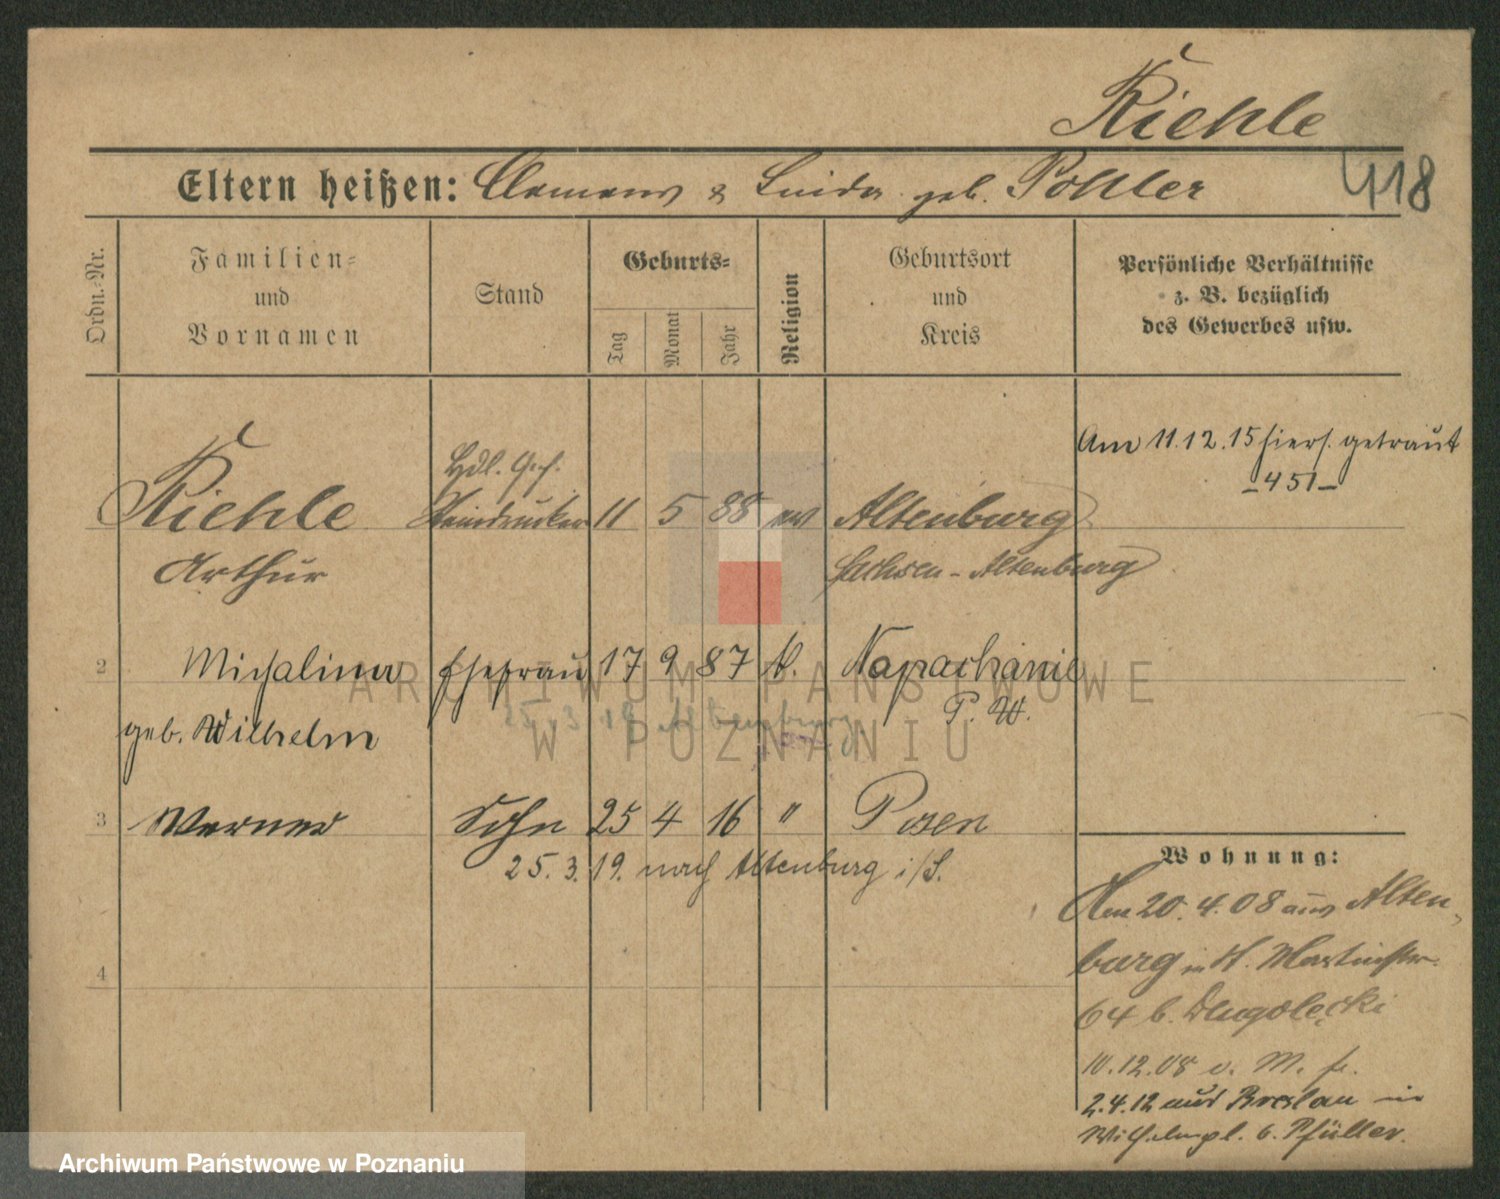 Kiehle
418
Eltern heißen: Clemens & Linda geb. Pohler
Ordn.-Nr.
Familien-
und
Vornamen
Stand
Geburts-
Tag
Monat
Jahr
Religion
Geburtsort
und
Kreis
Persönliche Verhältnisse
z. B. bezüglich
des Gewerbes usw.
Am 11.12.15 hiers. getraut
-451-
Hdl. Geh.
Kiehle Steindrucker 11 5 88 ev Altenburg
Arthur Sachsen-Altenburg
2 Michalina Ehefrau 17 9 87 k. Napachanie
geb. Wilhelm P. W.
25. 3. 19 Altenburg
3 Werner Sohn 25 4 16 " Posen
25. 3. 19. nach Altenburg i/S.
4
Wohnung:
Am 20. 4. 08 aus Alten-
burg in St. Martinstr.
64 b. Dlugolecki
10.12.08 v. M. fr.
2.4.12 aus Breslau in
Wilhelmpl. 6. Pfüller.
ARCHIWUM PAŃSTWOWE
W POZNANIU
Archiwum Państwowe w Poznaniu